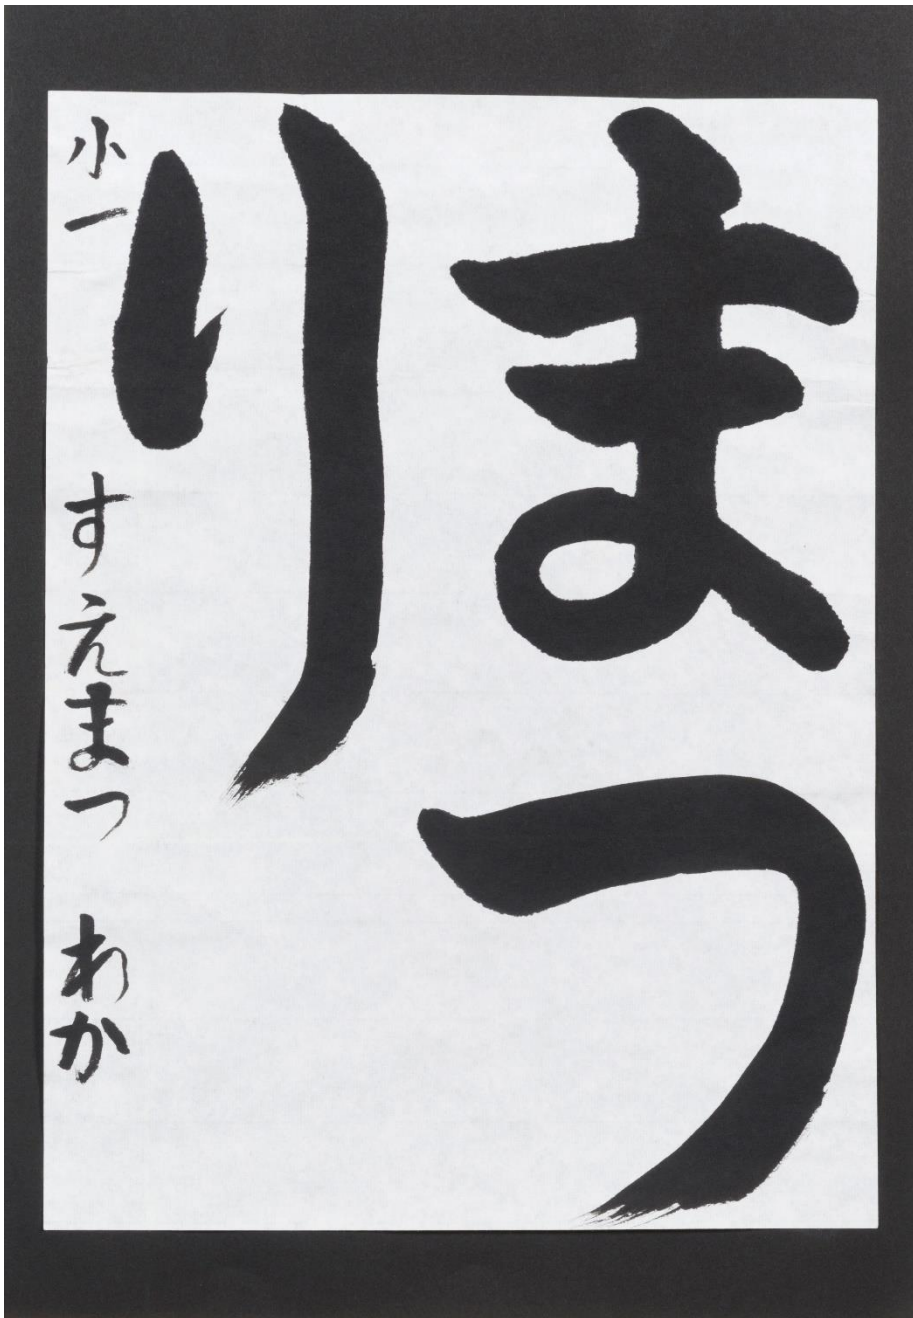 まつ
り
小一 すえまつ わか